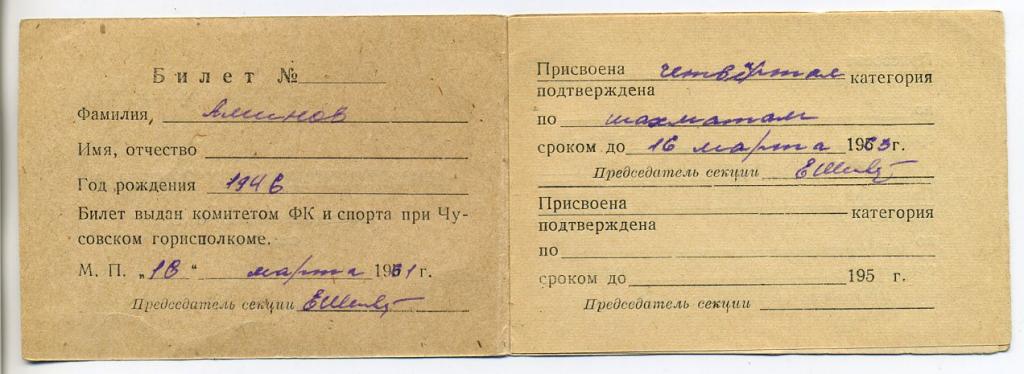 Билет №
Фамилия, Аминов
Имя, отчество
Год рождения 1946
Билет выдан комитетом ФК и спорта при Чу-
совском горисполкоме.
М. П. „16“ марта 1961 г.
Председатель секции
Присвоена четвёртая категория
подтверждена
по шахматам
сроком до 16 марта 1963 г.
Председатель секции
Присвоена категория
подтверждена
по
сроком до 195 г.
Председатель секции